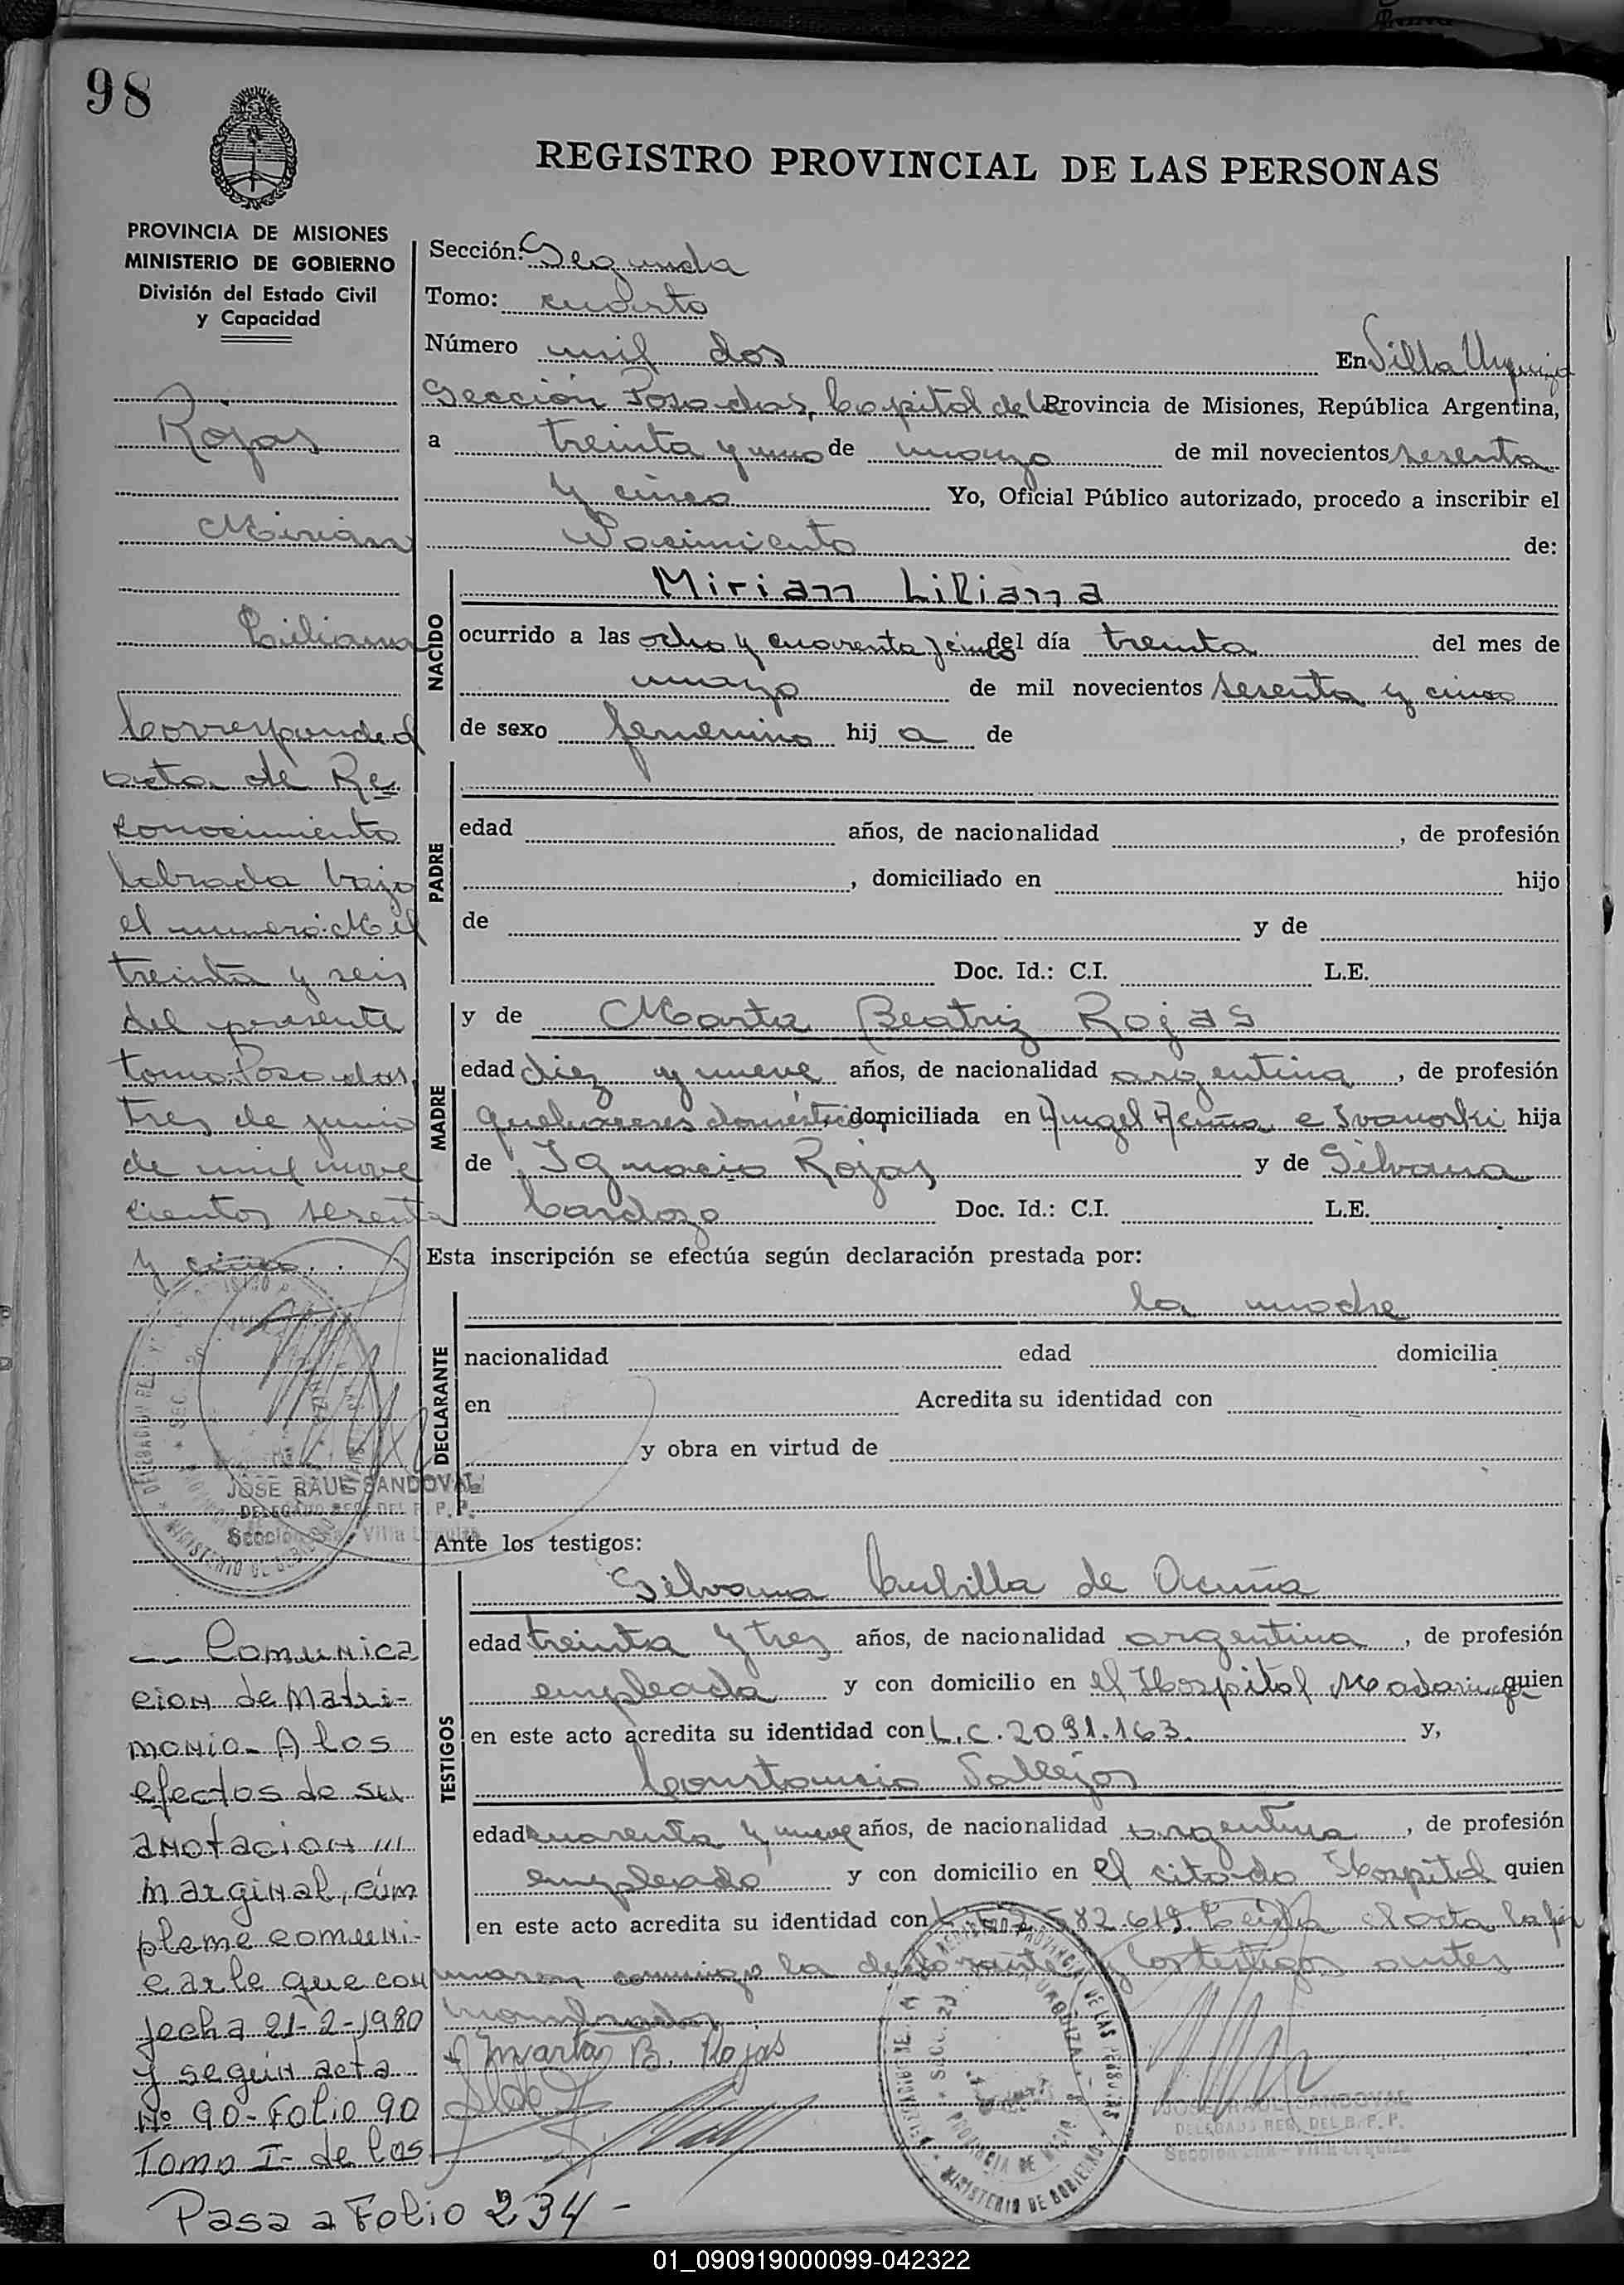 98
REGISTRO PROVINCIAL DE LAS PERSONAS
PROVINCIA DE MISIONES
MINISTERIO DE GOBIERNO
División del Estado Civil
y Capacidad
Rojas
Mirian
Liliana
Corresponde al
acta de Re
conocimiento
labrada bajo
el numero: Mil
treinta y seis
del presente
tomo. Posadas,
tres de junio
de mil nove
cientos sesenta
y cinco.
JOSE RAUL SANDOVAL
DELEGADO REG. DEL R. P. P.
Sección 2da. Villa Urquiza
-- Comunica
cion de Matri-
monio - A los
efectos de su
anotacion
marginal, cúm
pleme comuni-
carle que con
fecha 21-2-1980
y según acta
Nº 90 - Folio 90
Tomo I - de los
Pasa a Folio 234 -
Sección: Segunda
Tomo: cuarto
Número mil dos En Villa Urquiza
Sección Posadas, Capital de la Provincia de Misiones, República Argentina,
a treinta y uno de mayo de mil novecientos sesenta
y cinco Yo, Oficial Público autorizado, procedo a inscribir el
Nacimiento de:
NACIDO
Mirian Liliana
ocurrido a las ocho y cuarenta y cinco del día treinta del mes de
mayo de mil novecientos sesenta y cinco
de sexo femenino hij a de
PADRE
edad años, de nacionalidad , de profesión
, domiciliado en hijo
de y de
Doc. Id.: C.I. L.E.
MADRE
y de Marta Beatriz Rojas
edad diez y nueve años, de nacionalidad argentina , de profesión
quehaceres domésticos, domiciliada en Angel Acuña e Ivanoski hija
de Ignacio Rojas y de Silvana
Cardozo Doc. Id.: C.I. L.E.
Esta inscripción se efectúa según declaración prestada por:
DECLARANTE
la madre
nacionalidad edad domicilia
en Acredita su identidad con
y obra en virtud de
Ante los testigos:
TESTIGOS
Silvana Cubilla de Acuña
edad treinta y tres años, de nacionalidad argentina , de profesión
empleada y con domicilio en el Hospital Madariaga quien
en este acto acredita su identidad con L.C. 2091.163. y,
Constancio Vallejos
edad cuarenta y nueve años, de nacionalidad argentina , de profesión
empleado y con domicilio en el citado Hospital quien
en este acto acredita su identidad con 582.619 Leida el acta la fir
maron conmigo la declarante y los testigos antes
nombrados
Marta B. Rojas
JOSE RAUL SANDOVAL
DELEGADO REG. DEL R. P. P.
Sección 2da. - Villa Urquiza
01_090919000099-042322